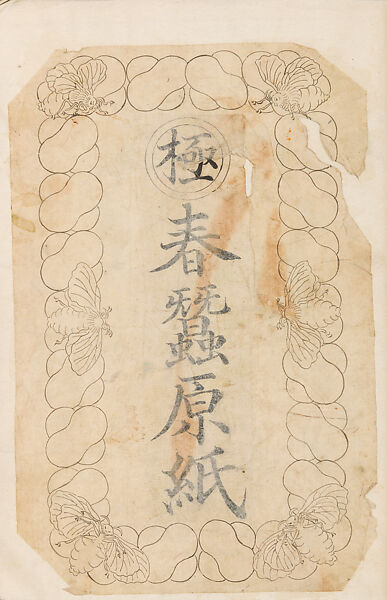 極
春蠶原紙